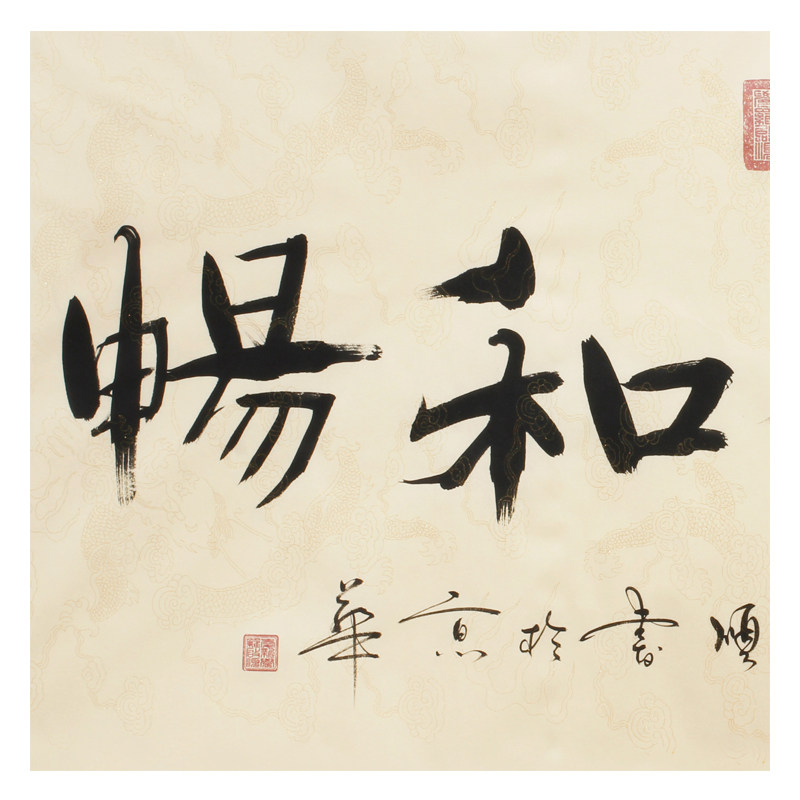 和暢
順書於京華